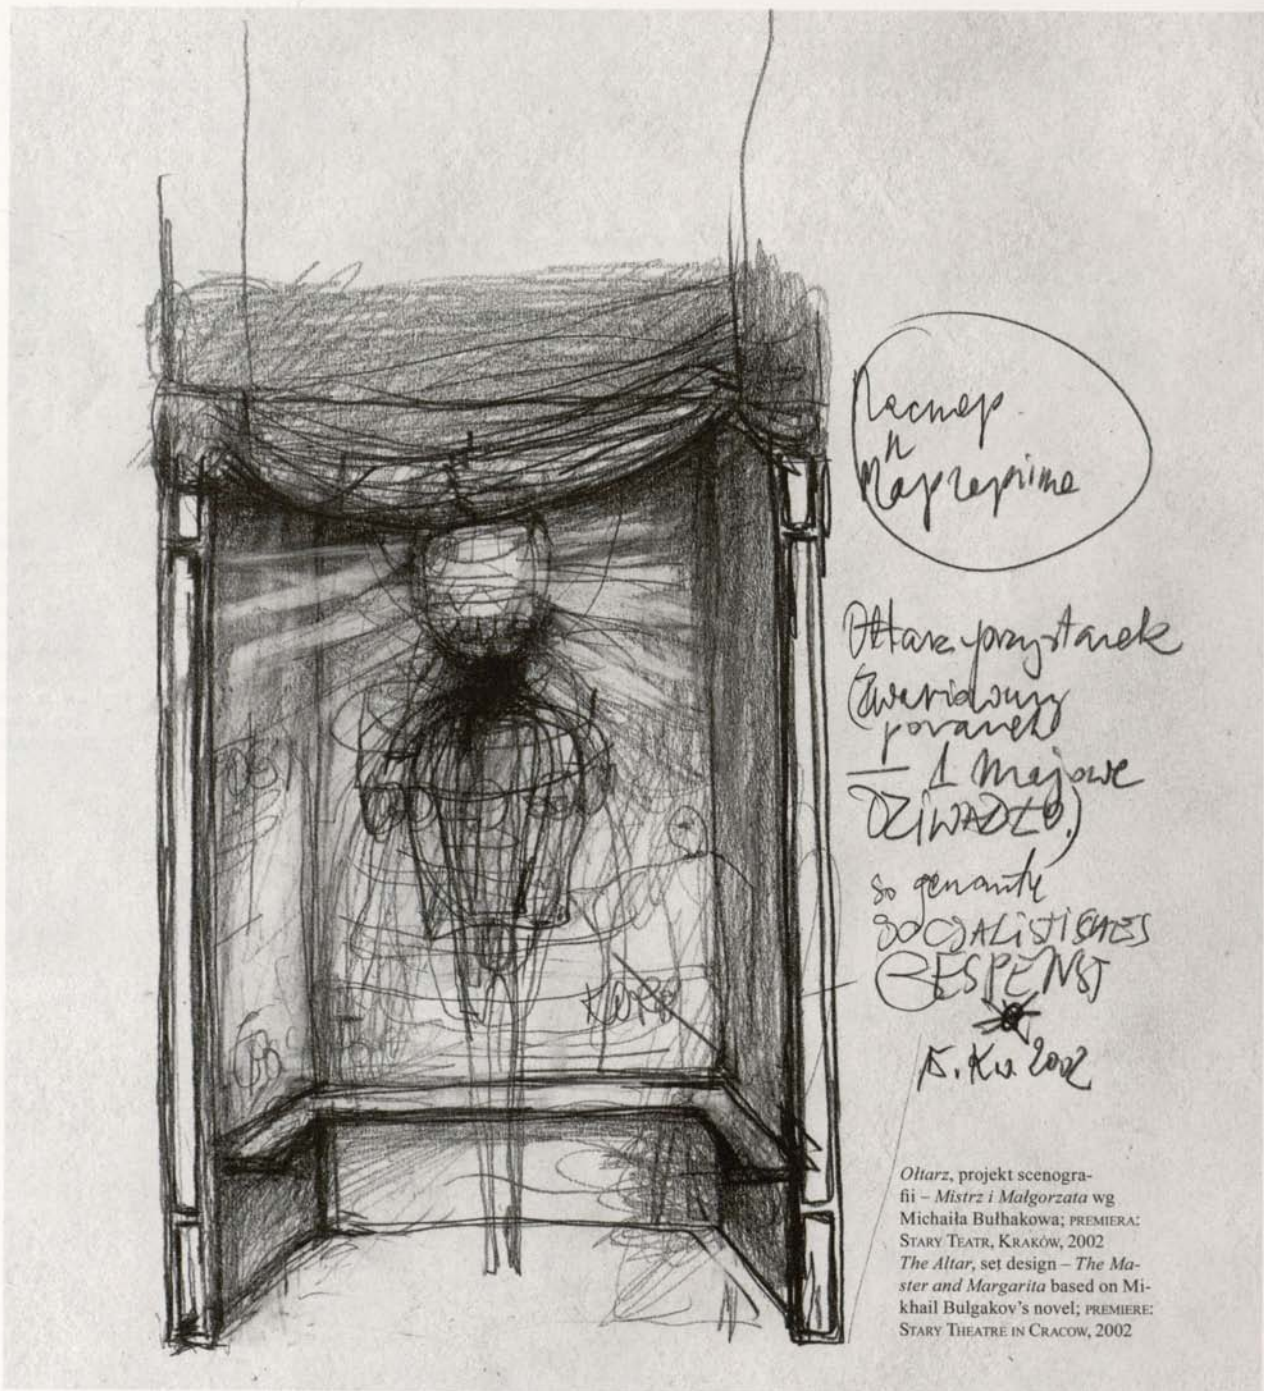 Мастер
и
Ołtarz przystanek
(zwariowany
poranek
— 1 Majowe
DZIWADŁO.)
so genante
SOCJALISTISCHES
GESPENST
A. Kw. 2002
Ołtarz, projekt scenogra-
fii – Mistrz i Małgorzata wg
Michaiła Bułhakowa; PREMIERA:
STARY TEATR, KRAKÓW, 2002
The Altar, set design – The Ma-
ster and Margarita based on Mi-
khail Bulgakov's novel; PREMIERE:
STARY THEATRE IN CRACOW, 2002